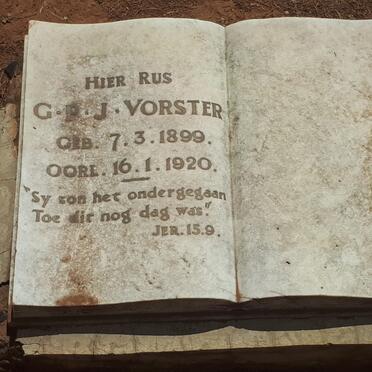 HIER RUS
G. P. J. VORSTER
GEB. 7. 3. 1899.
OORL. 16. 1. 1920.
"Sy son het ondergegaan
Toe dit nog dag was."
JER. 15.9.